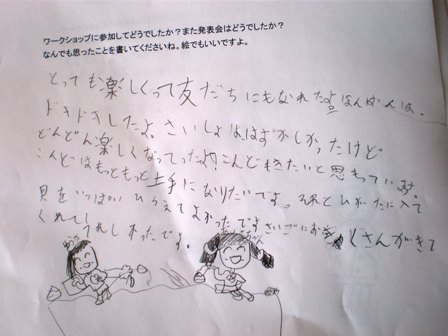 ワークショップに参加してどうでしたか？また発表会はどうでしたか？
なんでも思ったことを書いてくださいね。絵でもいいですよ。
とっても楽しくって友だちにもなれたよ
ドキドキしたよ。さいしょははずかしかったけど
どんどん楽しくなってったよ。こんどきたいと思っています。
こんどはもっともっと上手になりたいです。それとひがたに入て
貝をいっぱいひろえてよかったです さいごにお客くさんがきて
くれてうれしかったです。